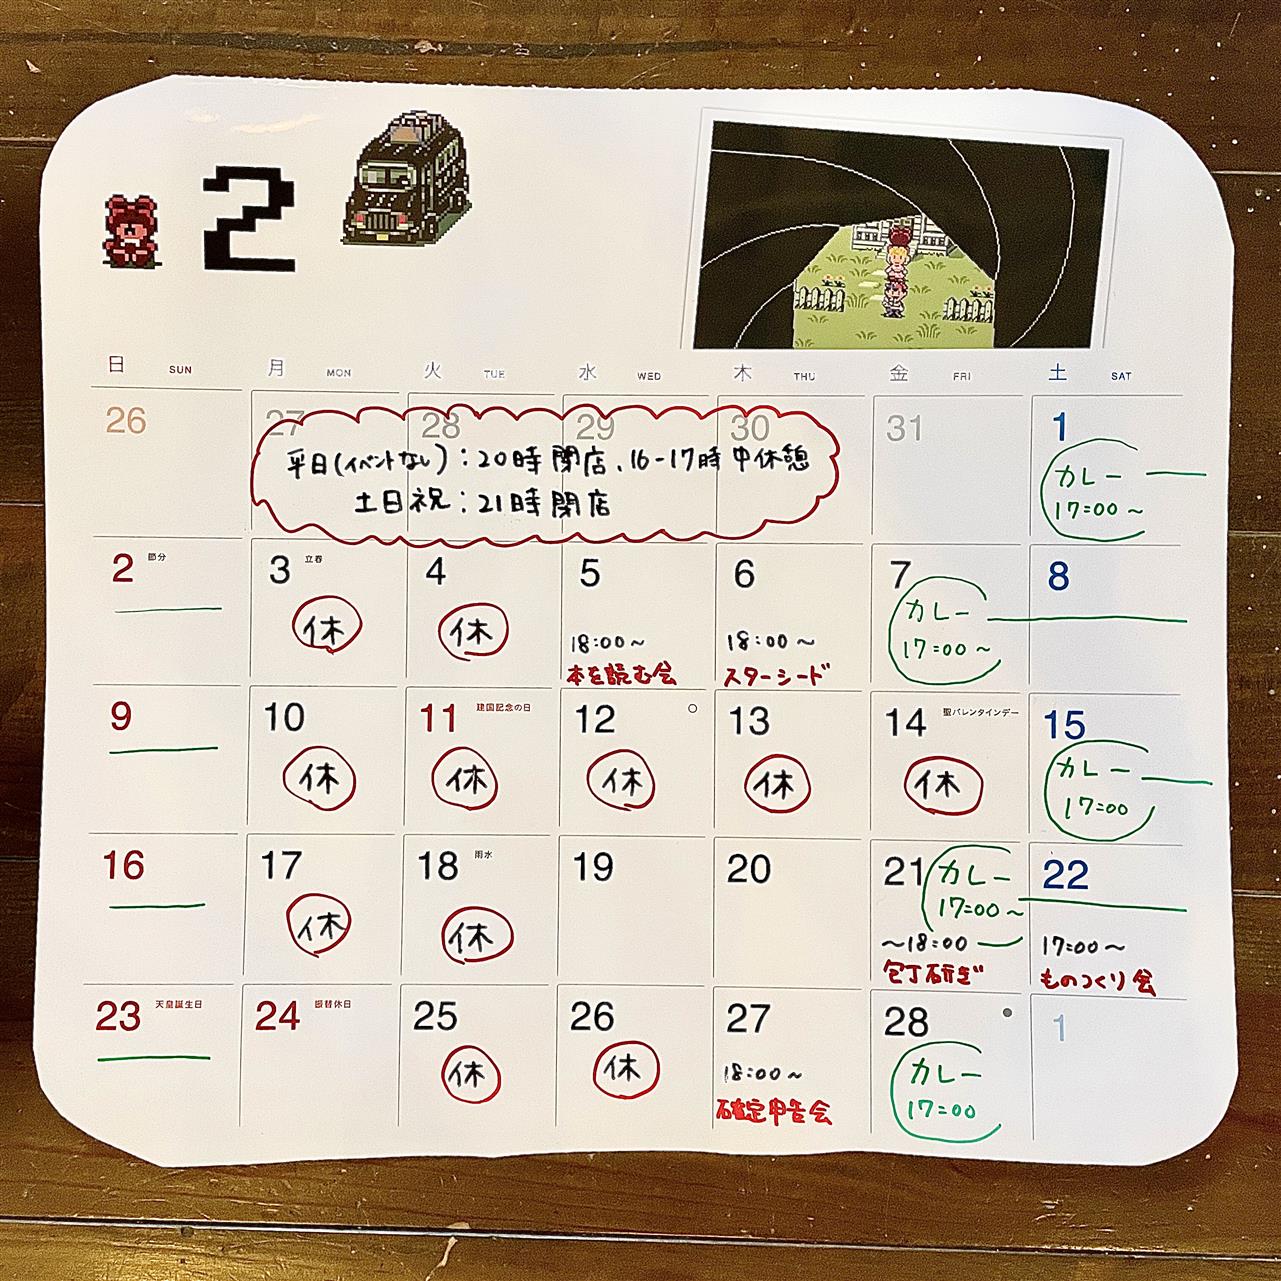 2
日 SUN 月 MON 火 TUE 水 WED 木 THU 金 FRI 土 SAT
26 27 28 29 30 31 1
平日(イベントなし):20時閉店、16-17時中休憩
土日祝:21時閉店
カレー
17:00~
2 節分 3 立春 4 5 6 7 8
休 休
カレー
17:00~
18:00~ 18:00~
本を読む会 スターシード
9 10 11 建国記念の日 12 13 14 聖バレンタインデー 15
休 休 休 休 休
カレー
17:00
16 17 18 雨水 19 20 21 22
カレー
17:00~
休 休
~18:00 17:00~
包丁研ぎ ものつくり会
23 天皇誕生日 24 振替休日 25 26 27 28 1
休 休
カレー
18:00~ 17:00
確定申告会